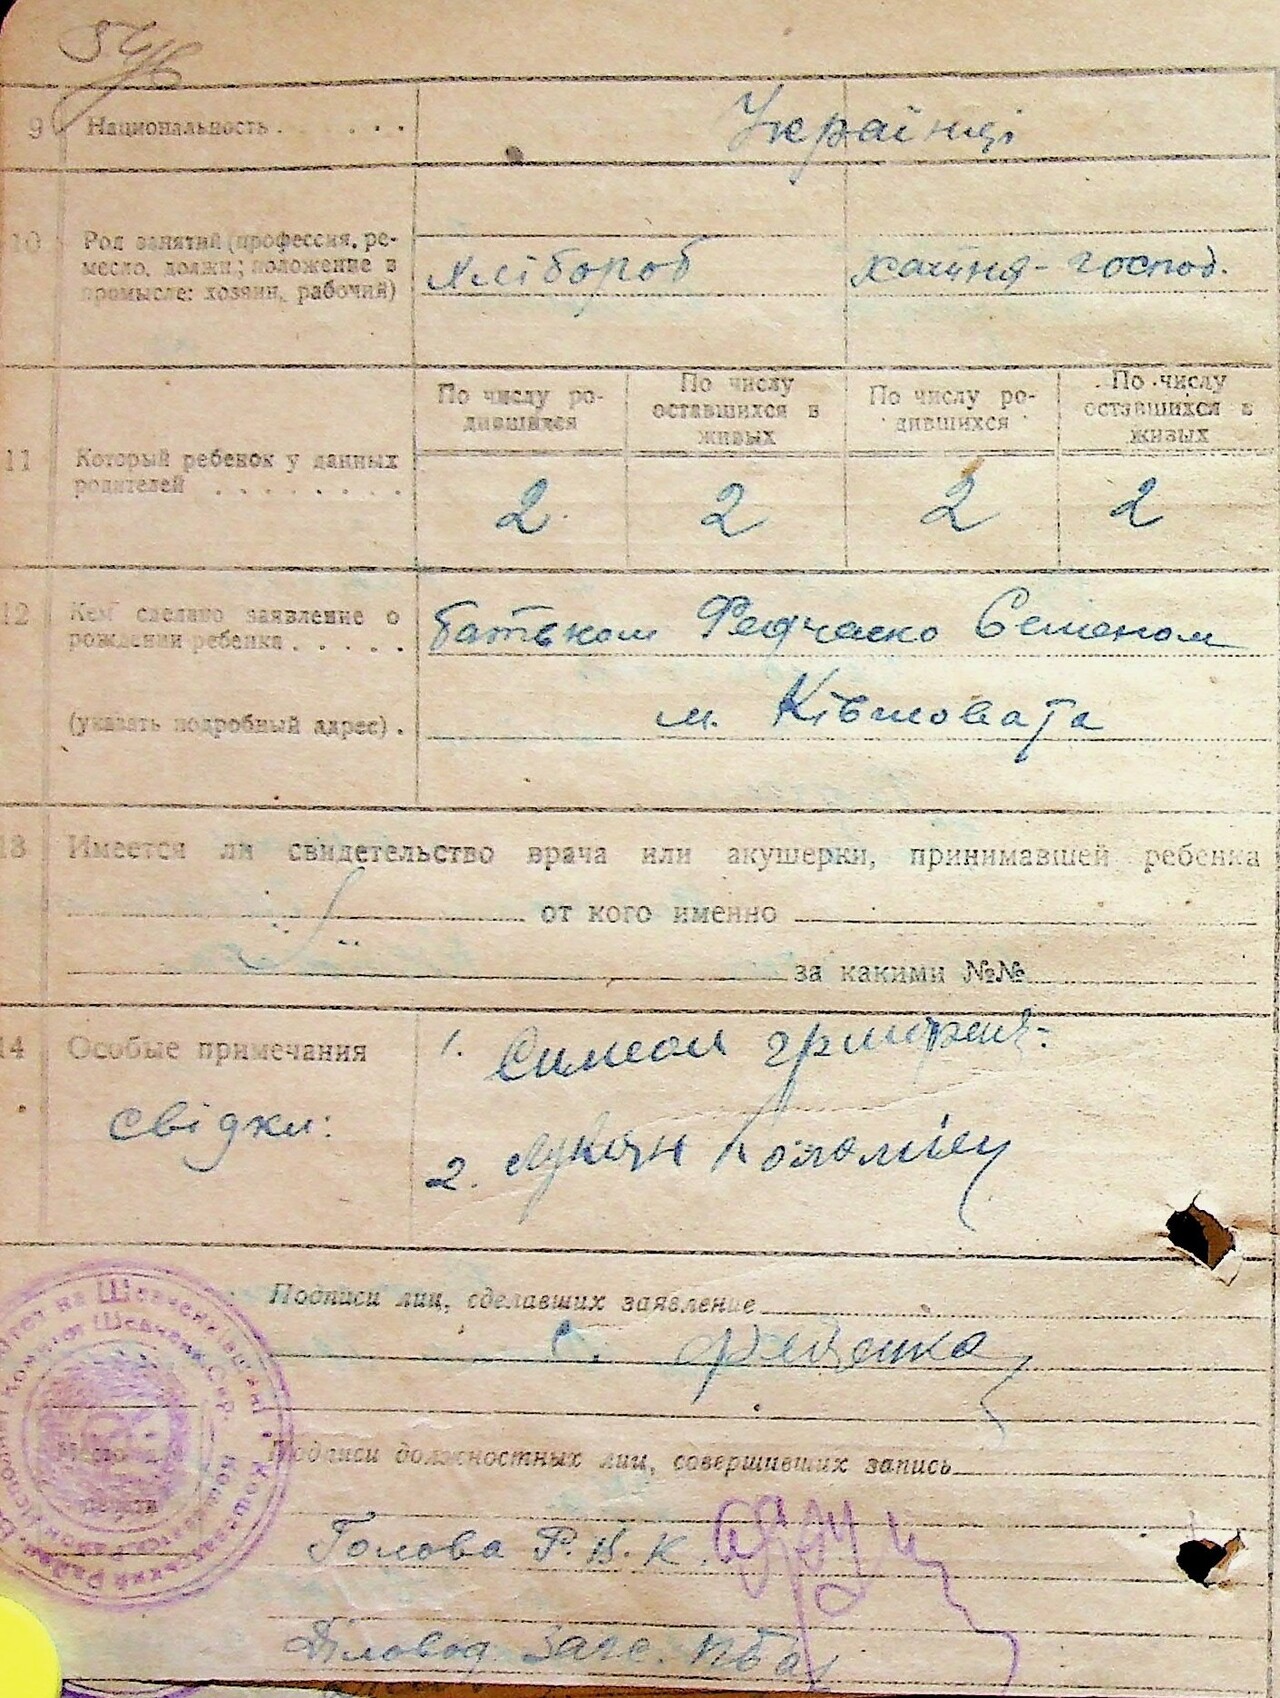 54/б
9 Национальность . . . . . . Українці
10 Род занятий (профессия, ре-
месло, должн.; положение в
промысле: хозяин, рабочий)
Хлібороб хатня-господ.
По числу ро-
дившихся
По числу
оставшихся в
живых
По числу ро-
дившихся
По числу
оставшихся в
живых
11 Который ребенок у данных
родителей . . . . . . . .
2 2 2 2
12 Кем сделано заявление о
рождении ребенка . . . . .
батьком Федченко Семеном
(указать подробный адрес) . м. Ківшовата
13 Имеется ли свидетельство врача или акушерки, принимавшей ребенка
от кого именно
за какими №№
14 Особые примечания
1. Симеон
свідки:
2. Лукян Коломієц
Подписи лиц, сделавших заявление
С. Федченко
Подписи должностных лиц, совершивших запись
Голова Р.В.К.
Діловод Загс.